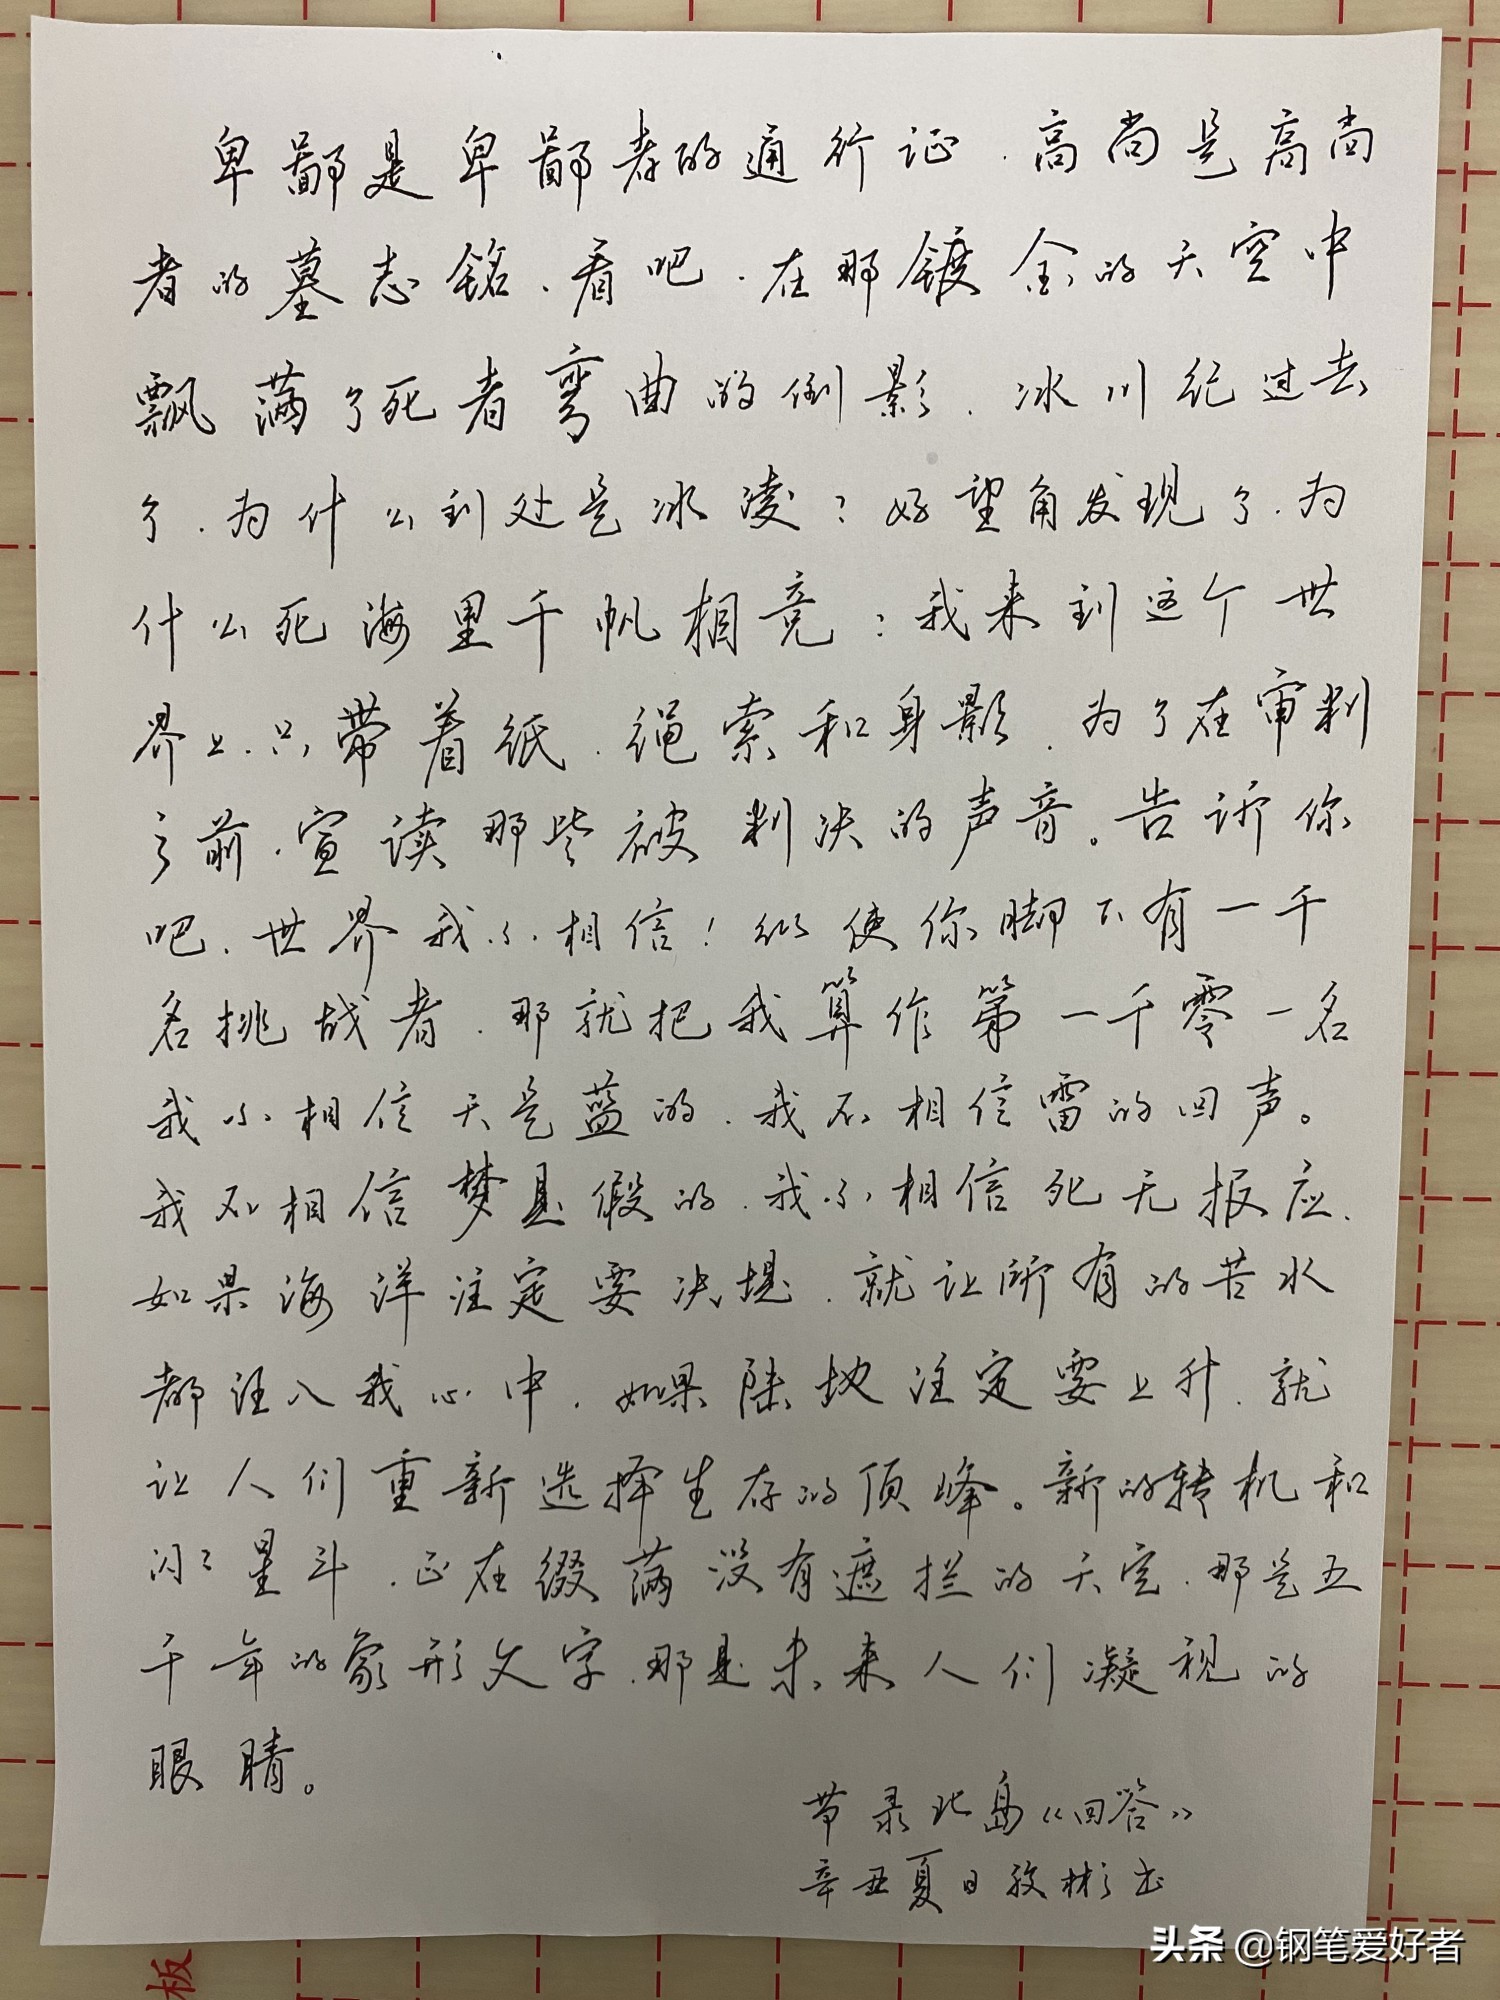 卑鄙是卑鄙者的通行证.高尚是高尚
者的墓志铭.看吧.在那镀金的天空中
飘满了死者弯曲的倒影.冰川纪过去
了.为什么到处是冰凌?好望角发现了.为
什么死海里千帆相竞?我来到这个世
界上.只带着纸.绳索和身影.为了在审判
之前.宣读那些被判决的声音。告诉你
吧.世界我不相信!纵使你脚下有一千
名挑战者.那就把我算作第一千零一名
我不相信天是蓝的.我不相信雷的回声。
我不相信梦是假的.我不相信死无报应.
如果海洋注定要决堤.就让所有的苦水
都注入我心中.如果陆地注定要上升.就
让人们重新选择生存的顶峰。新的转机和
闪闪星斗.正在缀满没有遮拦的天空.那是五
千年的象形文字.那是未来人们凝视的
眼睛。
录北岛《回答》
辛丑夏日 彬书
头条 @钢笔爱好者
板